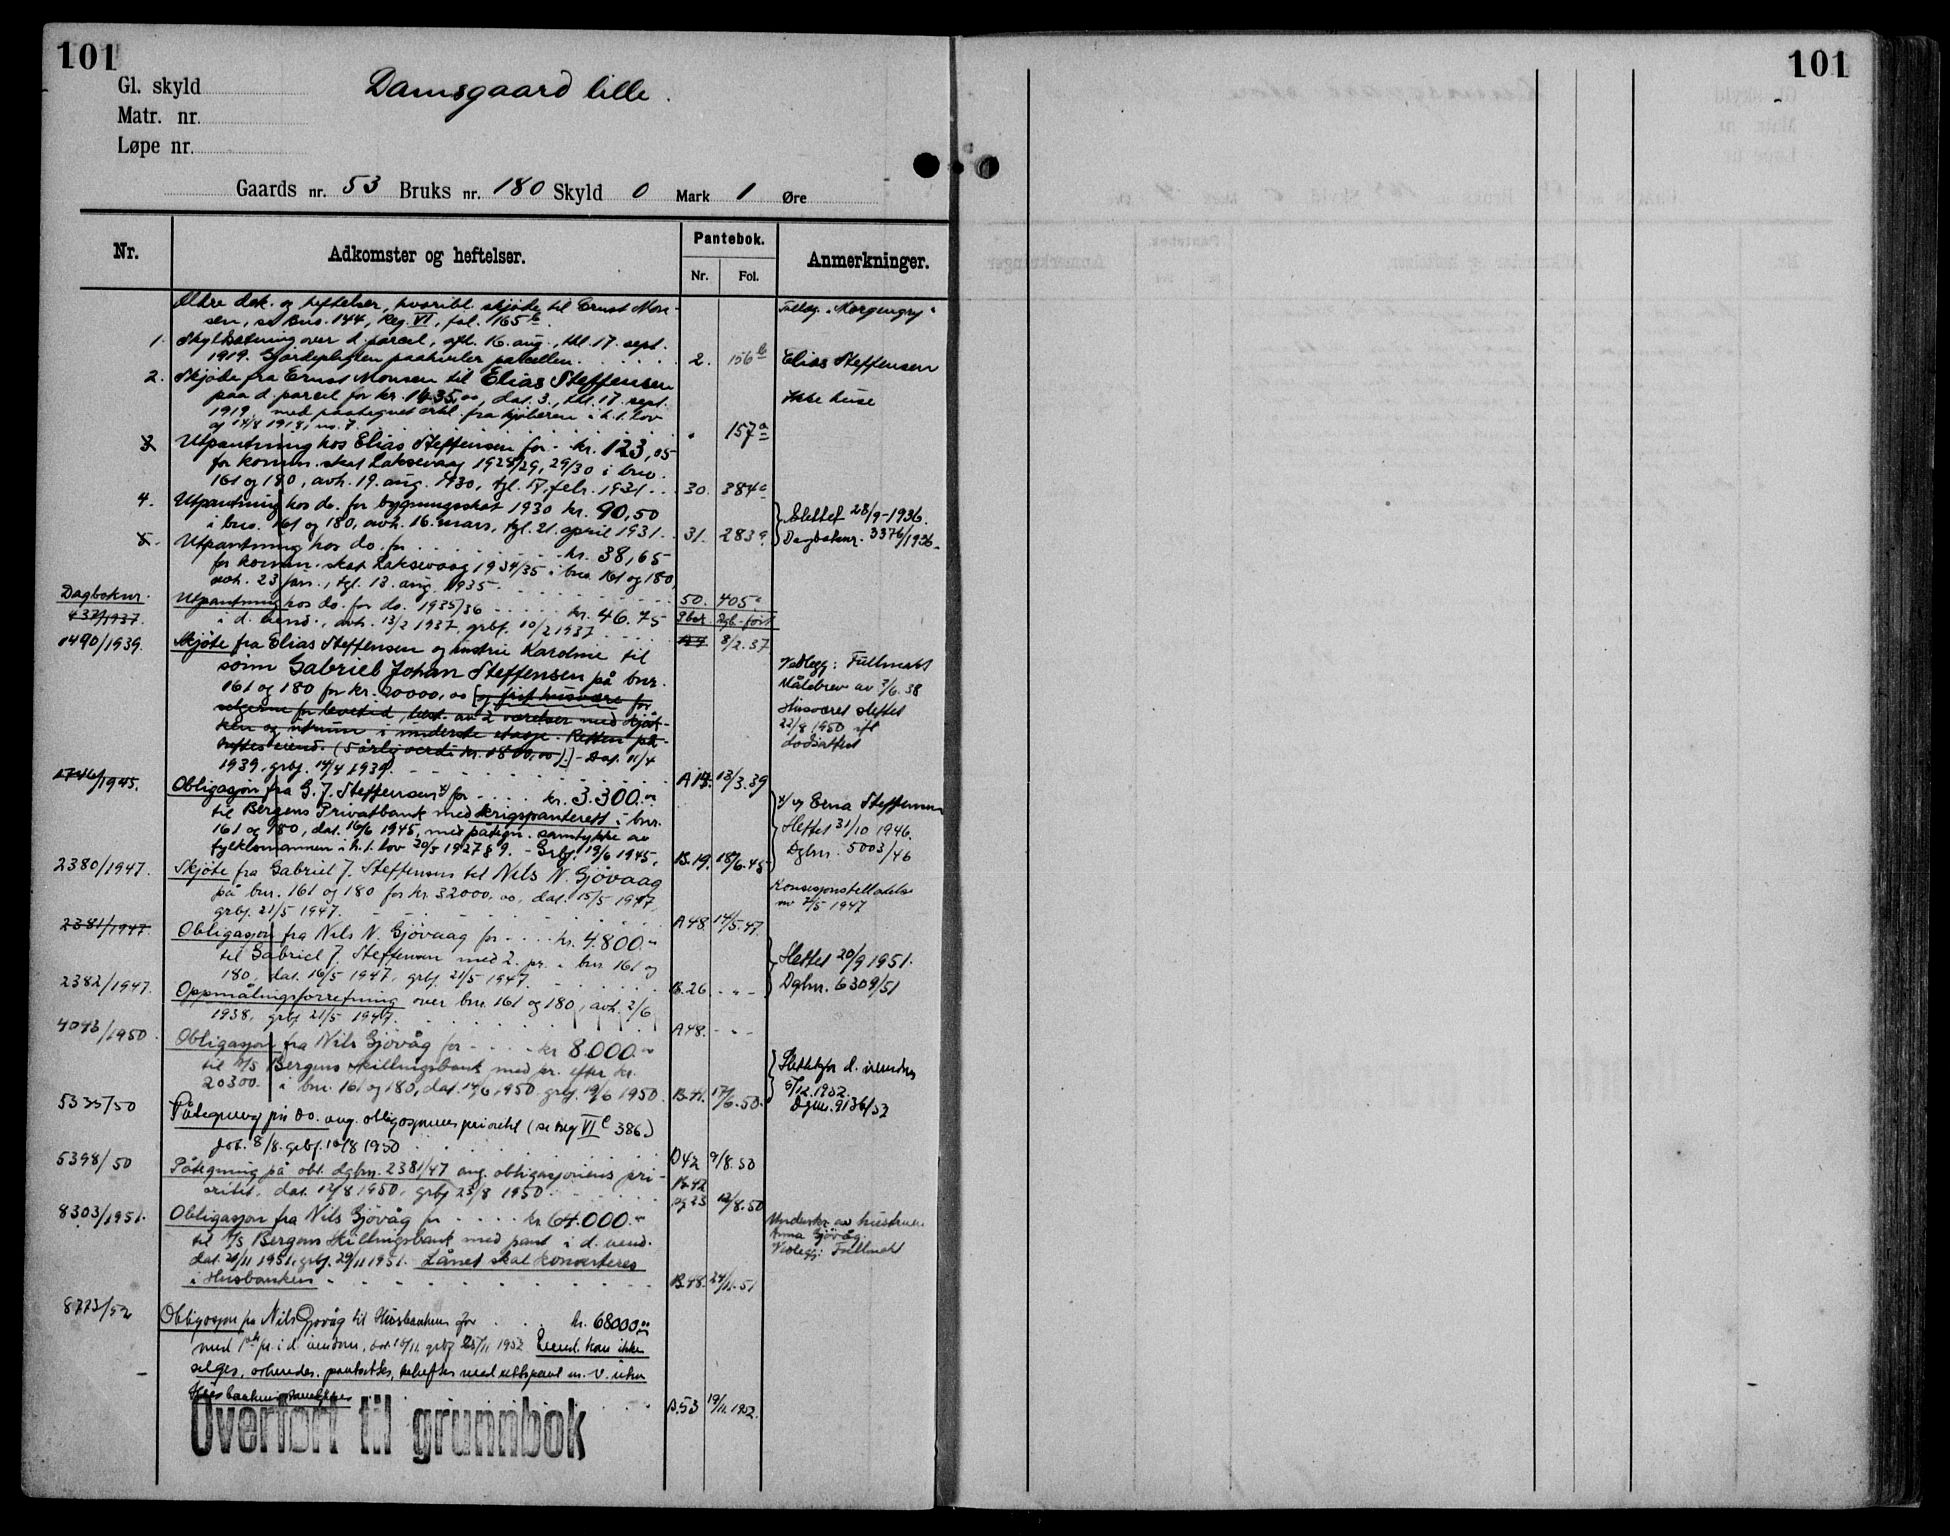 101
101
Gl. skyld
Matr. nr.
Løpe nr.
Damsgaard lille.
Gaards nr. 53 Bruks nr. 180 Skyld 0 Mark 1 Øre
Nr.
Adkomster og heftelser.
Pantebok.
Nr.
Fol.
Anmerkninger.
Ældre dok. og heftelser, hvoribl. skjøde til Ernst Mon-
sen, se Bno. 144, Reg. VI, fol. 165 b.
"Morgengry"
1. Skyldsætning over d. parcel, afh. 16. aug., thl. 17. sept.
1919. Gjærdepligten paahviler parcellen. 2. 156 b
Elias Steffensen
2. Skjøde fra Ernst Monsen til Elias Steffensen
paa d. parcel for kr. 1435,00, dat. 3., thl. 17. sept.
Ikke huse
1919, med paategnet erkl. fra kjøberen i h. t. lov
af 14/8 1918, no. 7. " 157 a
3. Utpantning hos Elias Steffensen for kr. 123,05
for komm. skat Laksevaag 1928/29, 29/30 i bno.
161 og 180, avh. 19. aug. 1930, tgl. febr. 1931. 30. 384 a
4. Utpantning hos do. for bygningsskat 1930 kr. 90,50
i bno. 161 og 180, avh. 16. mars, tgl. 21. april 1931. 31. 283 a
Slettet 28/9-1936.
Dagboknr. 3376/1936.
5. Utpantning hos do. for kr. 38,65
for komm. skat Laksevaag 1934/35 i bno. 161 og 180,
avh. 23 jan., tgl. 13. aug. 1935. 50. 405 a
Dagboknr.
437/1937.
Utpantning hos do. for do. 1935/36 kr. 46.75
Pbok Dgb.-ført
i d. eiend., avh. 13/2 1937, grbf. 10/2 1937 8/2.37
1490/1939.
Skjøte fra Elias Steffensen og hustru Karoline til
sønn Gabriel Johan Steffensen på bnr.
161 og 180 for kr. 20000,00 [og frit husvære for
selgerne for levetid, best. av 2 værelser med kjøk-
ken og uterum i underste etasje. Retten på-
heftes eiend. (5 årlig verdi kr. 1800,00).] - Dat. 11/4
1939, grbf. 14/4 1939. A 14. 13/3.39
Vedlegg: Fullmakt
Målebrev av 2/6.38
Husværet slettet
22/8 1950 ifl.
dødsattest
1746/1945.
Obligasjon fra G. J. Steffensen x) for kr. 3.300.00
til Bergens Privatbank med krigspanterett i bnr.
161 og 180, dat. 16/6 1945, med påtegn. samtykke av
fylkesmannen i h. t. lov 20/5 1927 § 9. - Grbf. 19/6 1945. B. 19. 18/6.45
x) og Erna Steffensen
Slettet 31/10 1946.
Dgbnr. 5003/46
2380/1947.
Skjøte fra Gabriel J. Steffensen til Nils N. Gjøvaag
på bnr. 161 og 180 for kr. 32000,00, dat. 15/5 1947,
grbf. 21/5 1947. A 48. 14/5.47.
Konsesjonstillatelse
av 2/5 1947
2381/1947.
Obligasjon fra Nils N. Gjøvaag for kr. 4.800.00
til Gabriel J. Steffensen med 2. pr. i bnr. 161 og
180, dat. 16/5 1947, grbf. 21/5 1947. B. 26 - " -
Slettet 20/9 1951.
Dgbnr. 6309/51
2382/1947.
Oppmålingsforretning over bnr. 161 og 180, avh. 2/6
1938, grbf. 21/5 1947. A 48. - " -
4043/1950.
Obligasjon fra Nils Gjøvåg for kr 8.000.00
til A/S Bergens Skillingsbank med pr. efter kr.
20300. i bnr. 161 og 180, dat. 14/6 1950, grbf. 19/6 1950. B. 41. 17/6.50.
Slettet for d. eiendom
5/12.1952.
Dgbnr. 9136/52
5335/50
Påtegning på do. ang. obligasjonens prioritet (se Reg VI c 386)
dat. 8/8. grbf. 10/8 1950 D42 9/8.50
5398/50
Påtegning på obl. dgbnr. 2381/47 ang. obligasjonens pri-
oritet, dat. 12/8 1950, grbf. 23/8 1950. B. 42 pg 23 12/8.50
8303/1951.
Obligasjon fra Nils Gjøvåg for kr. 64.000.00
til A/S Bergens Skillingsbank med pant i d. eiend.
dat. 21/11 1951, grbf. 29/11 1951. Lånet skal konverteres
i Husbanken B. 48. 24/11.51
Underskr. av hustruen
Anna Gjøvåg.
Vedlegg: Fullmakt
8773/52
Obligasjon fra Nils Gjøvåg til Husbanken for kr. 68000.00
med 1ste pr. i d. eiendom, dat. 10/11. grbf. 25/11 1952. Eiend. kan ikke
selges, avhendes, pantsettes, beheftes med utlegg m. v. uten
Husbankens samtykke. B.53 19/11.1952.
Overført til grunnbok